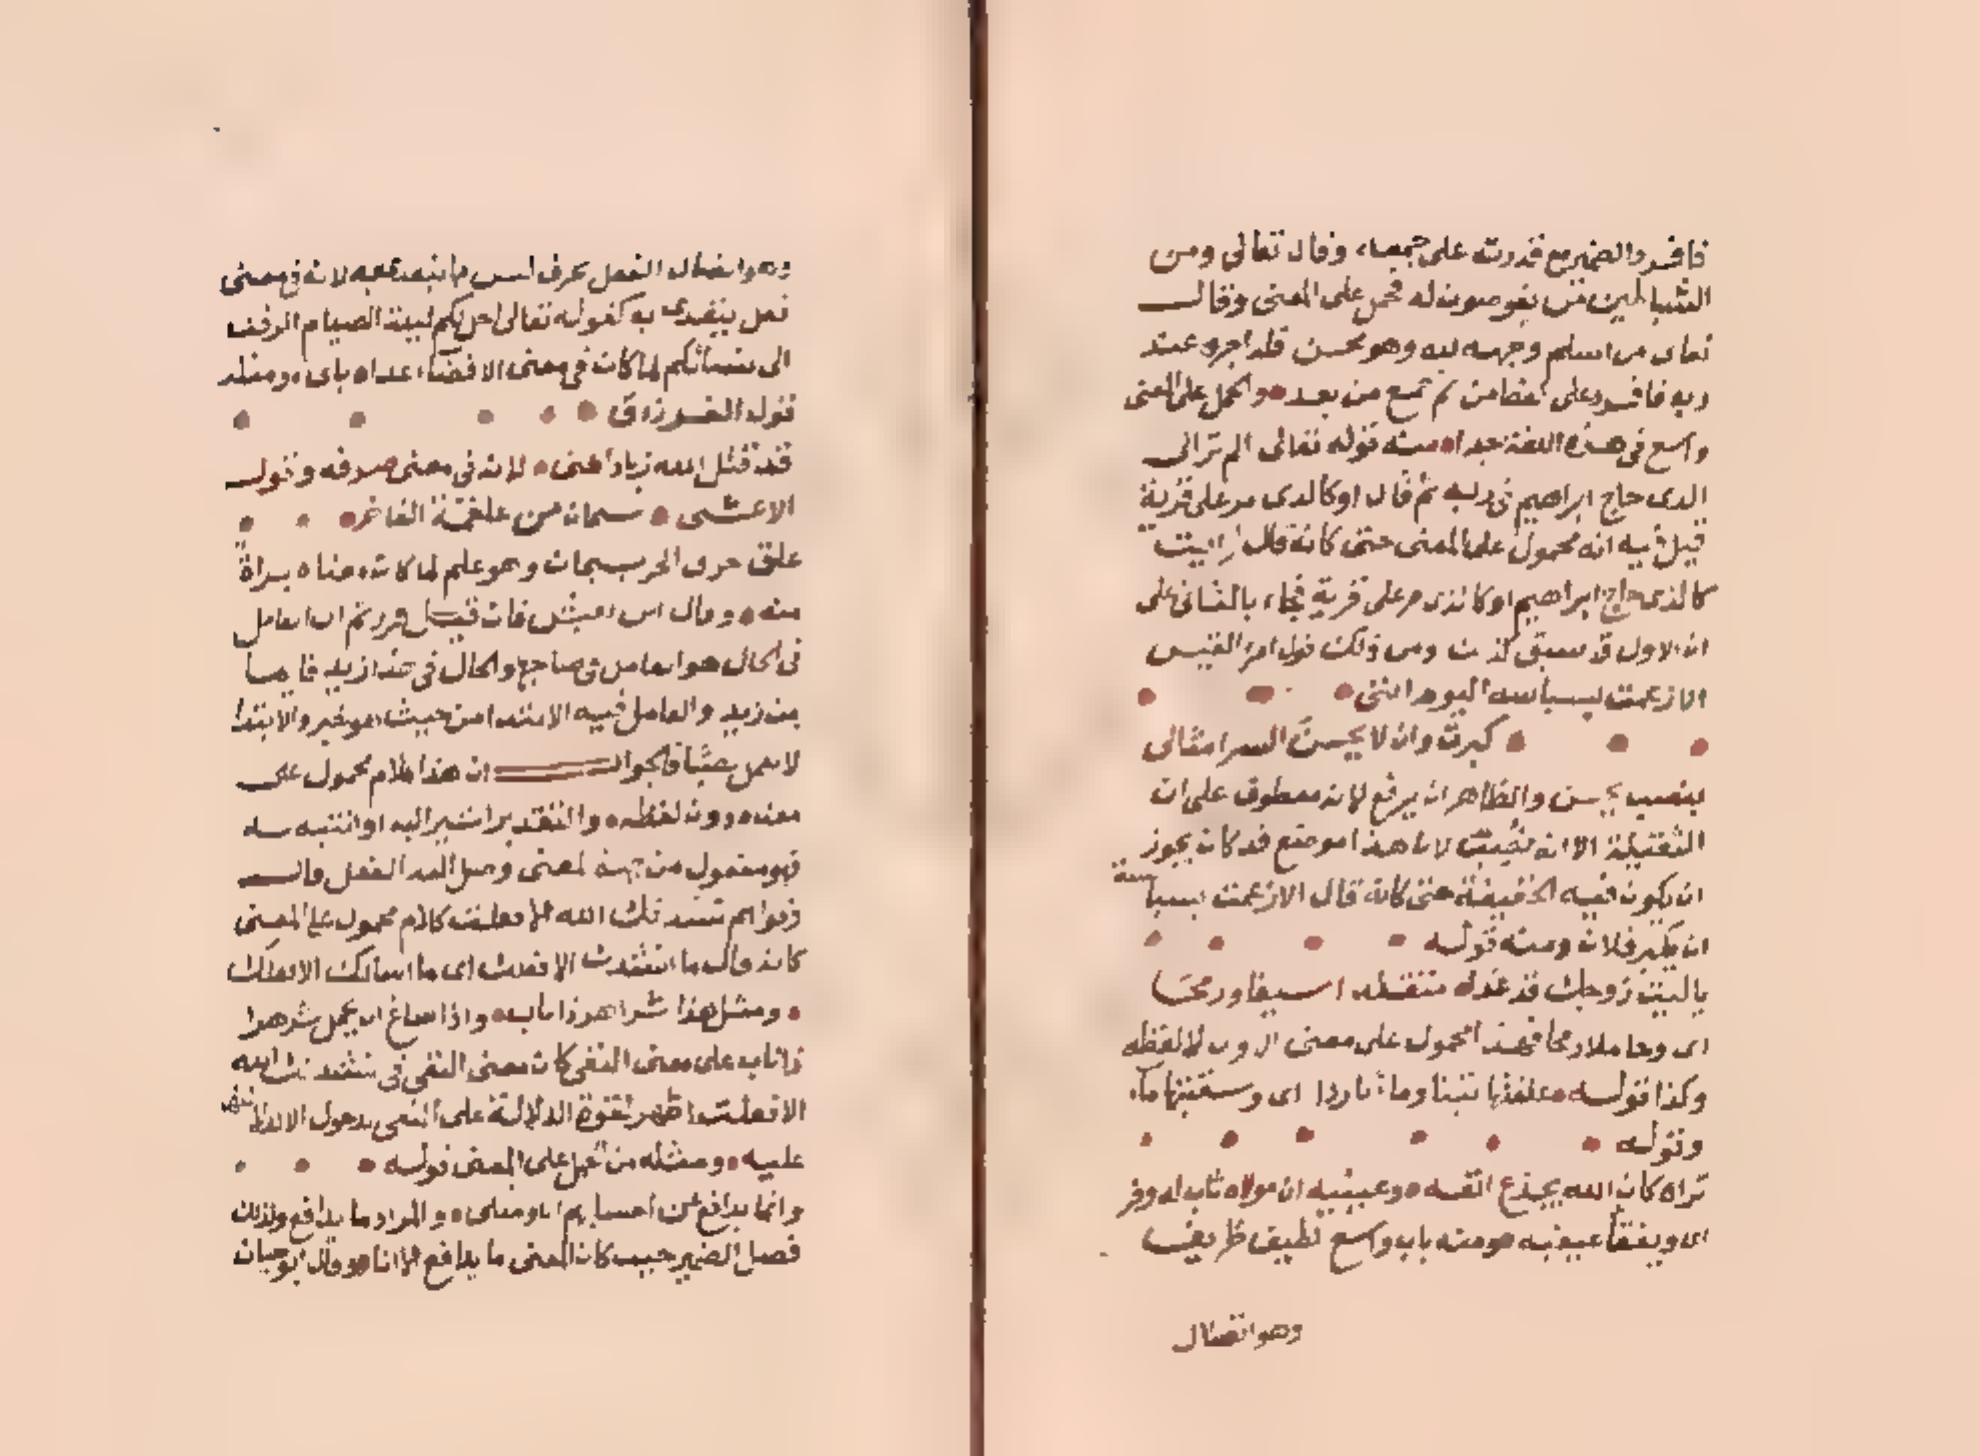 فافرد والضمير مع قدرته على جمعه، وقال تعالى ومن
الشياطين من يغوصون له فحمل على المعنى وقال
تعالى من اسلم وجهه لله وهو محسن فله اجره عند
ربه فافرد على لفظ من ثم جمع من بعد والحمل على المعنى
واسع فى هذه اللغة جدا ومنه قوله تعالى الم تر الى
الذى حاج ابراهيم فى ربه ثم قال او كالذى مر على قرية
قيل فيه انه محمول على المعنى حتى كانه قال ارايت
كالذى حاج ابراهيم او كالذى مر على قرية فجاء بالثانى على
ان الاول قد سبق كذلك ومن ذلك قول امرئ القيس
الا زعمت بسباسة اليوم اننى
كبرت وان لا يحسن السر امثالى
بنصب يحسن والظاهر ان يرفع لانه معطوف على ان
الثقيلة الا انه نصب لان هذا موضع قد كان يجوز
ان يكون فيه الخفيفة حتى كانه قال الا زعمت بسباسة
ان يكبر فلان ومنه قوله
يا ليت زوجك قد غدا متقلدا سيفا ورمحا
اى وحاملا رمحا فهذا محمول على معنى الاول لا لفظه
وكذا قوله علفتها تبنا وماء باردا اى وسقيتها ماء
وقوله
تراه كان الله يجدع انفه وعينيه ان مولاه ثاب له وفر
اى ويفقأ عينيه ومنه باب واسع لطيف ظريف
وهو اتصال
وهو اتصال الفعل بحرف ليس مما يتعدى به لانه فى معنى
فعل يتعدى به كقوله تعالى احل لكم ليلة الصيام الرفث
الى نسائكم لما كان فى معنى الافضاء عداه بالى ومثله
قول الفرزدق
قد قتل الله زيادا عنى لانه فى معنى صرفه وقول
الاعشى سبحان من علقمة الفاخر
علق حرف الجر بسبحان وهو علم لما كان معناه براءة
منه وقال ابن يعيش فان قيل قررتم ان العامل
فى الحال هو العامل فى صاحبها والحال فى هذا زيد قائما
من زيد والعامل فيه الابتداء من حيث هو خبر والابتداء
لا يعمل نصبا فالجواب ان هذا كلام محمول على
معناه دون لفظه والتقدير اشير اليه او انتبه له
فهو مفعول من جهة المعنى وصل اليه الفعل وقال
قولهم نشدتك الله الا فعلت كلام محمول على المعنى
كانه قال ما انشدك الا فعلك اى ما اسالك الا فعلك
ومثل هذا شر اهر ذا ناب واذا ساغ ان يحمل شر اهر
ذا ناب على معنى النفى كان معنى النفى فى نشدتك الله
الا فعلت اظهر لقوة الدلالة على النفى بدخول الا لدلالتها
عليه ومثله من الحمل على المعنى قوله
وانما يدافع عن احسابهم انا او مثلى والمراد ما يدافع ولذلك
فصل الضمير حيث كان المعنى ما يدافع الا انا وقال ابو حيان